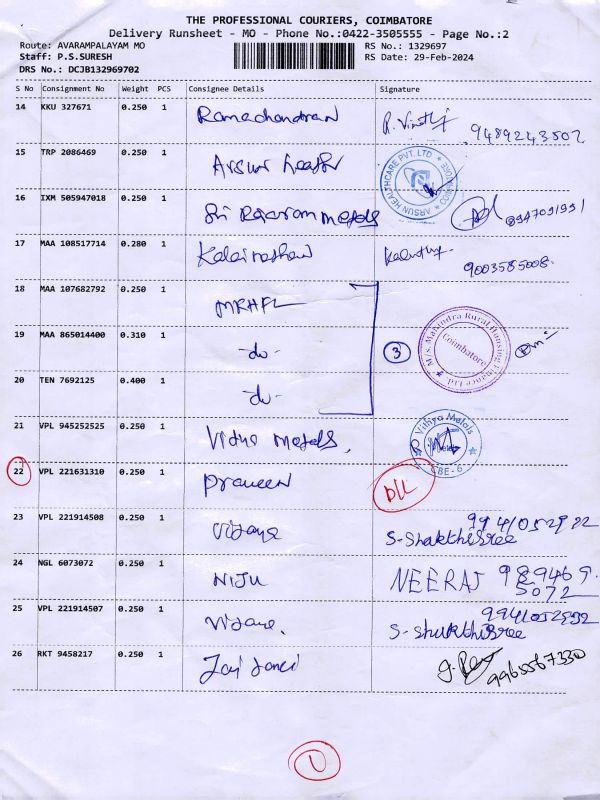 THE PROFESSIONAL COURIERS, COIMBATORE
Delivery Runsheet - MO - Phone No.:0422-3505555 - Page No.:2
Route: AVARAMPALAYAM MO RS No.: 1329697
Staff: P.S.SURESH RS Date: 29-Feb-2024
DRS No.: DCJB132969702
S No Consignment No Weight PCS Consignee Details Signature
14 KKU 327671 0.250 1 Ramachandran 9489243502
15 TRP 2086469 0.250 1 Arsun
ARSUN HEALTHCARE PVT. LTD COIMBATORE
16 IXM 505947018 0.250 1 Sri Rajaram metals
17 MAA 108517714 0.280 1 9003585008.
18 MAA 107682792 0.250 1 MRHFL
19 MAA 865014400 0.310 1 -do- 3
M/s. Mahindra Rural Housing Finance Ltd Coimbatore
20 TEN 7692125 0.400 1 -do-
21 VPL 945252525 0.250 1 metals
Vithya Metals CBE-6
22 VPL 221631310 0.250 1 praveen DLL
23 VPL 221914508 0.250 1 Vijaya 9941052922
S-Shakthisree
24 NGL 6073072 0.250 1 NIJU NEERAJ 989469
5072
25 VPL 221914507 0.250 1 Vijaya. 9941052992
S-Shukthisree
26 RKT 9458217 0.250 1 9965567330
1